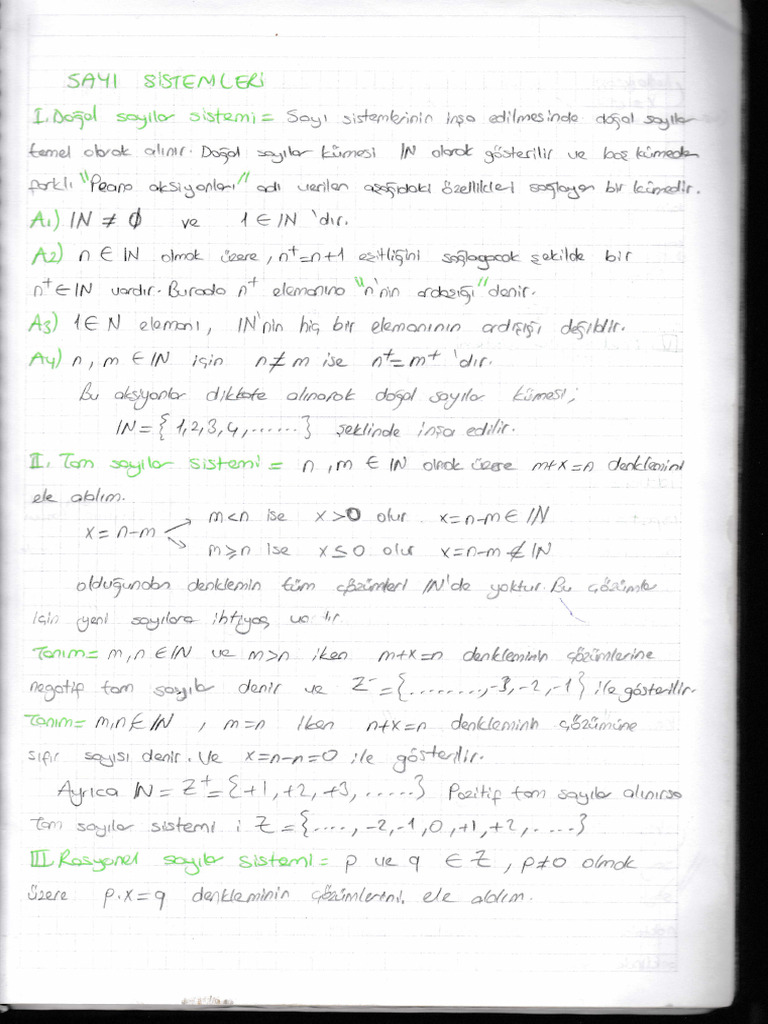 SAYI SİSTEMLERİ
I. Doğal sayılar sistemi = Sayı sistemlerinin inşa edilmesinde doğal sayılar
temel olarak alınır. Doğal sayılar kümesi IN olarak gösterilir ve boş kümeden
farklı "Peano aksiyonları" adı verilen aşağıdaki özellikleri sağlayan bir kümedir.
A1) IN ≠ ∅ ve 1 ∈ IN 'dır.
A2) n ∈ IN olmak üzere, n⁺=n+1 eşitliğini sağlayacak şekilde bir
n⁺∈IN vardır. Burada n⁺ elemanına "n'nin ardışığı" denir.
A3) 1∈N elemanı, IN'nin hiç bir elemanının ardışığı değildir.
A4) n, m ∈ IN için n≠m ise n⁺=m⁺ 'dır.
Bu aksiyonlar dikkate alınarak doğal sayılar kümesi;
IN={1,2,3,4,......} şeklinde inşa edilir.
II. Tam sayılar sistemi = n, m ∈ IN olmak üzere m+x=n denklemini
ele alalım.
m<n ise x>0 olur x=n-m∈IN
x=n-m
m≥n ise x≤0 olur x=n-m∉IN
olduğundan denklemin tüm çözümleri IN'de yoktur. Bu çözümler
için yeni sayılara ihtiyaç vardır
Tanım= m,n∈IN ve m>n iken m+x=n denkleminin çözümlerine
negatif tam sayılar denir ve Z⁻={........,-3,-2,-1} ile gösterilir.
Tanım= m,n∈IN, m=n iken n+x=n denkleminin çözümüne
sıfır sayısı denir. Ve x=n-n=0 ile gösterilir.
Ayrıca IN=Z⁺={+1,+2,+3,.....} Pozitif tam sayılar alınırsa
tam sayılar sistemi ; Z={....,-2,-1,0,+1,+2,.....}
III. Rasyonel sayılar sistemi= p ve q ∈ Z, p≠0 olmak
üzere p.x=q denkleminin çözümlerini, ele alalım.